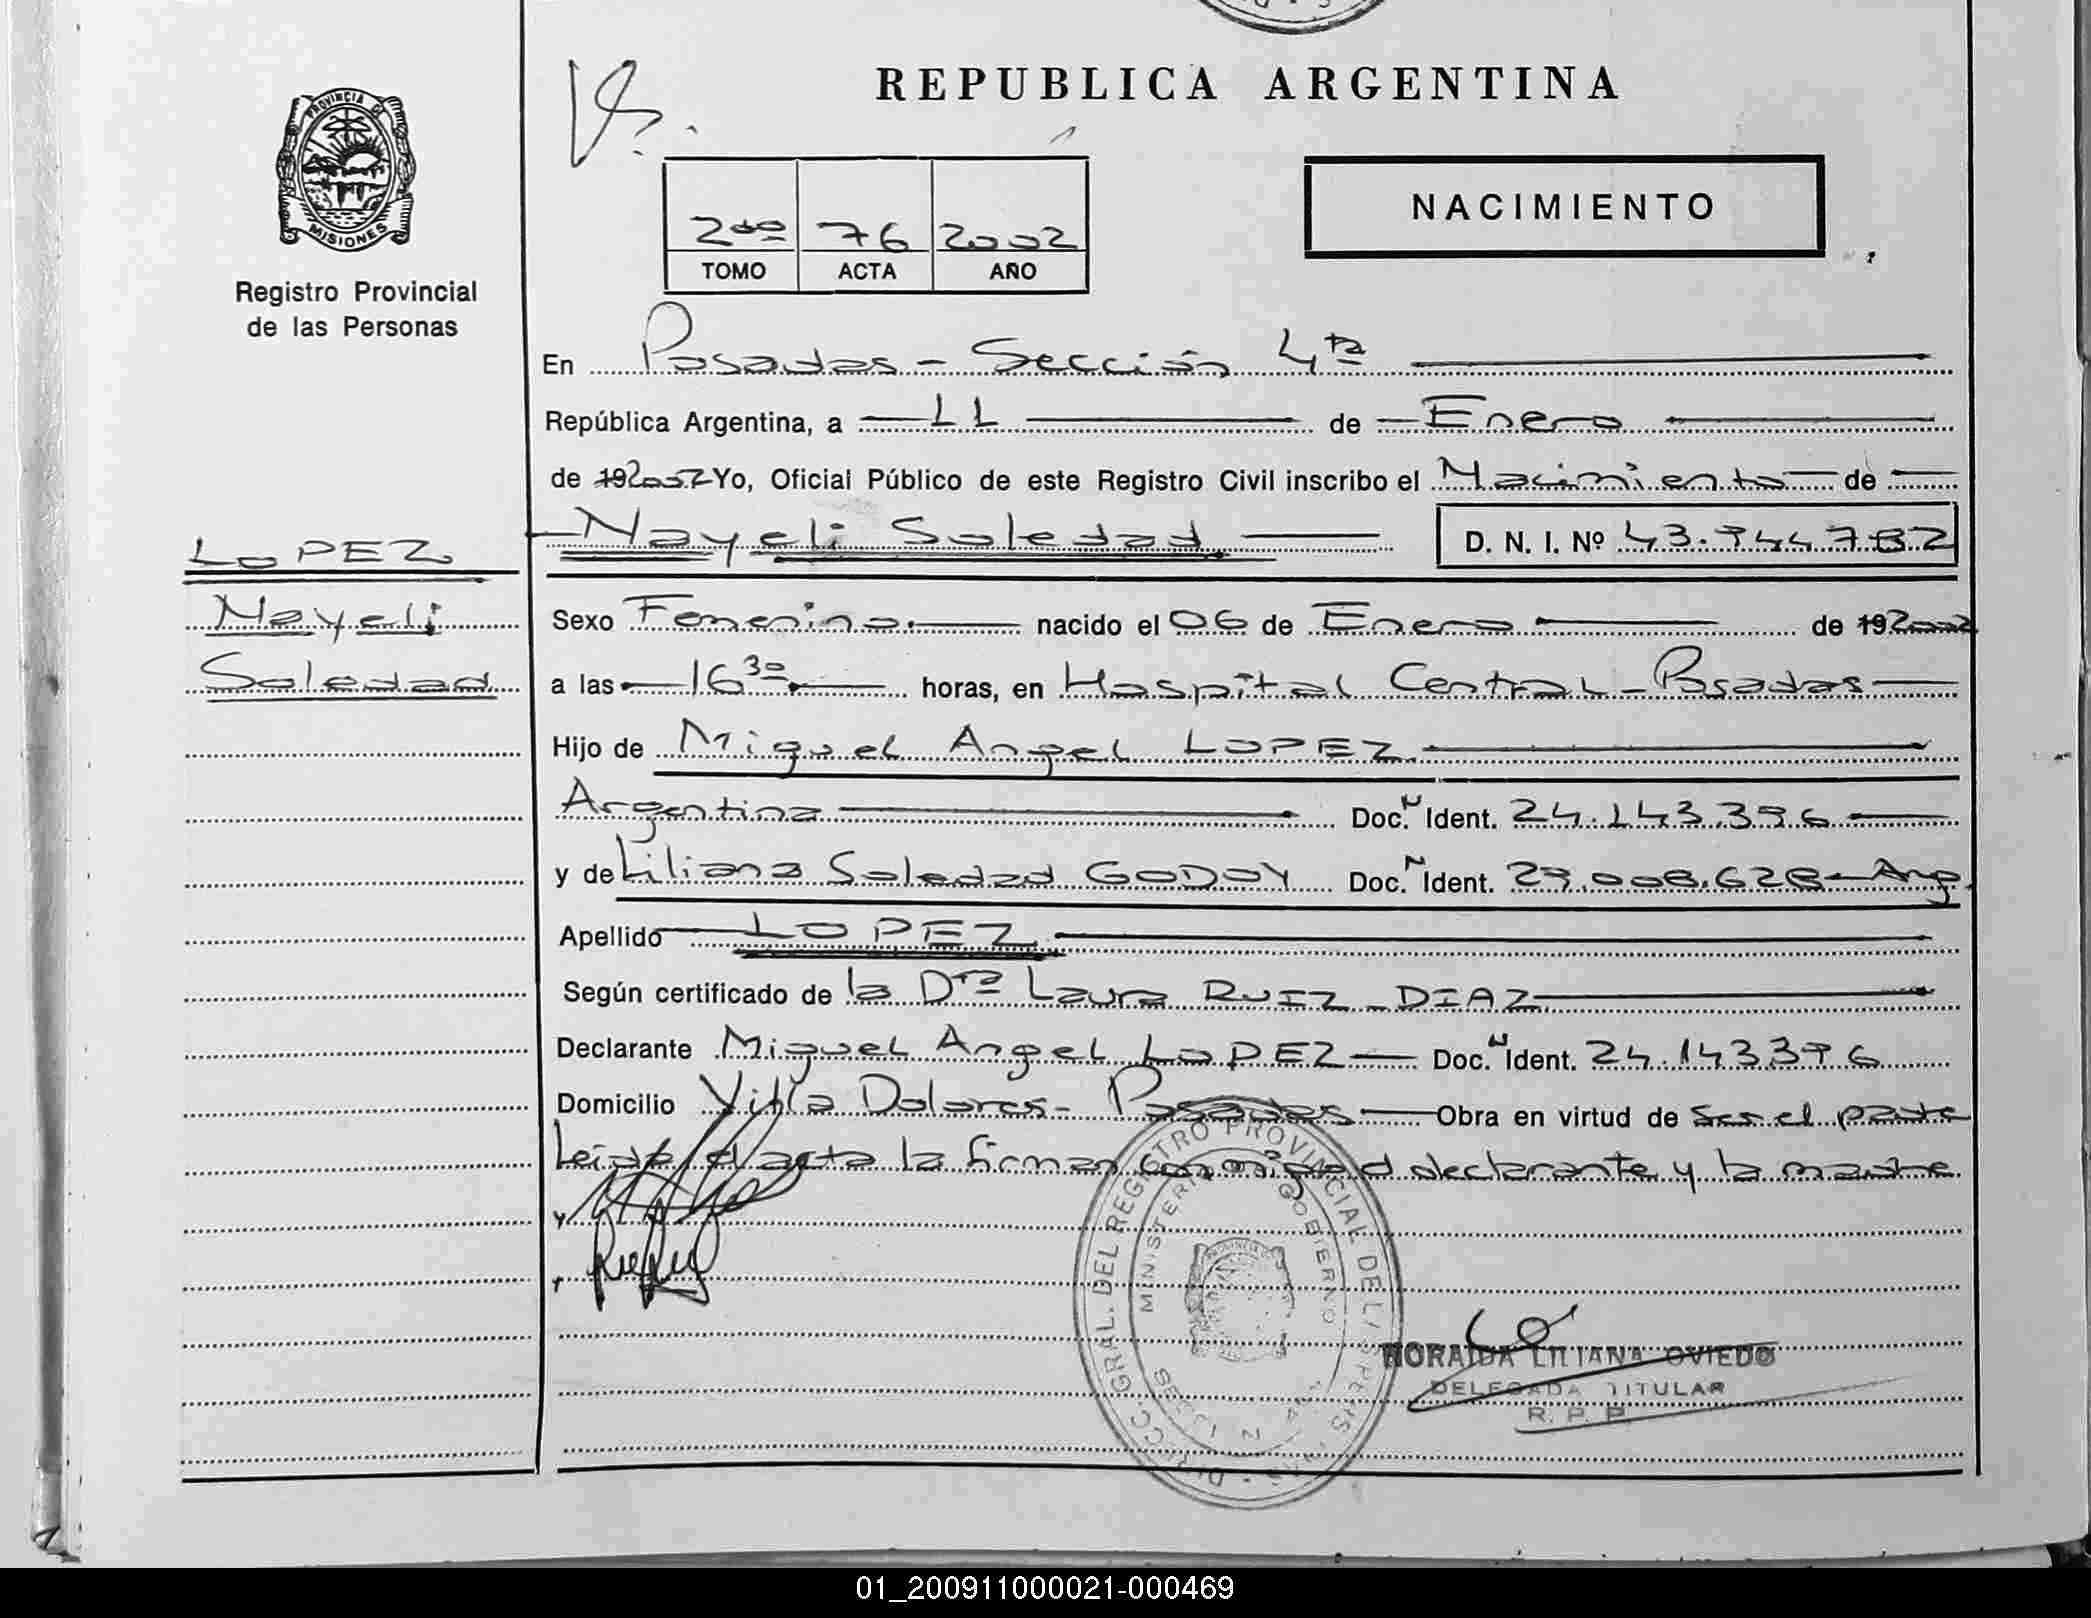 REPUBLICA ARGENTINA
PROVINCIA DE
MISIONES
Registro Provincial
de las Personas
NACIMIENTO
2do 76 2002
TOMO ACTA AÑO
En Posadas - Sección 4ta
República Argentina, a 11 de Enero
de 192002 Yo, Oficial Público de este Registro Civil inscribo el Nacimiento de
LOPEZ
Nayeli Soledad D. N. I. Nº
Nayeli
Soledad
Sexo Femenino. nacido el 06 de Enero de 192002
a las 16 30 horas, en Hospital Central - Posadas
Hijo de Miguel Angel LOPEZ
Argentina Doc. N Ident. 24.143.396
y de Liliana Soledad GODOY Doc. N Ident. 29.008.628 - Arg.
Apellido LOPEZ
Según certificado de la Dra Laura RUIZ - DIAZ
Declarante Miguel Angel LOPEZ Doc. N Ident. 24.143.396
Domicilio Villa Dolores - Posadas Obra en virtud de ser el padre
Leida el acta la firman conmigo el declarante y la madre
DIRECC. GRAL. DEL REGISTRO PROVINCIAL DE LAS PERSONAS
MINISTERIO GOBIERNO
MISIONES
LILIANA OVIEDO
DELEGADA TITULAR
R. P. P.
01_200911000021-000469